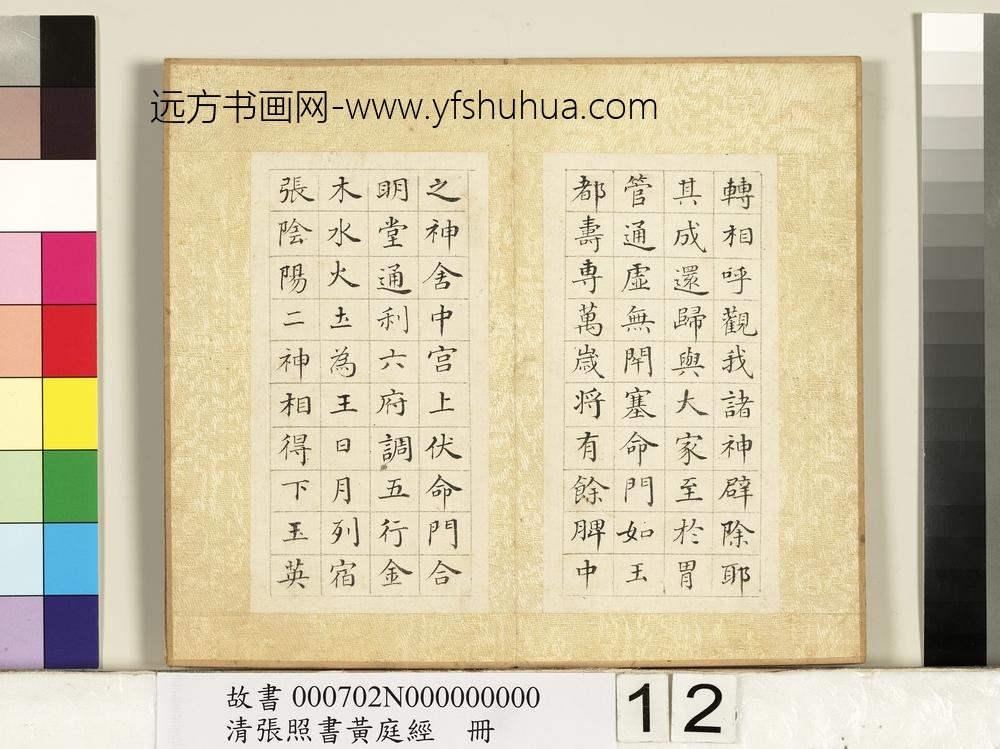 远方书画网-www.yfshuhua.com
轉相呼觀我諸神辟除耶
其成還歸與大家至於胃
管通虛無閇塞命門如玉
都壽專萬歲將有餘脾中
之神舍中宮上伏命門合
眀堂通利六府調五行金
木水火土為王日月列宿
張陰陽二神相得下玉英
故書 000702N000000000
清張照書黃庭經 冊
12